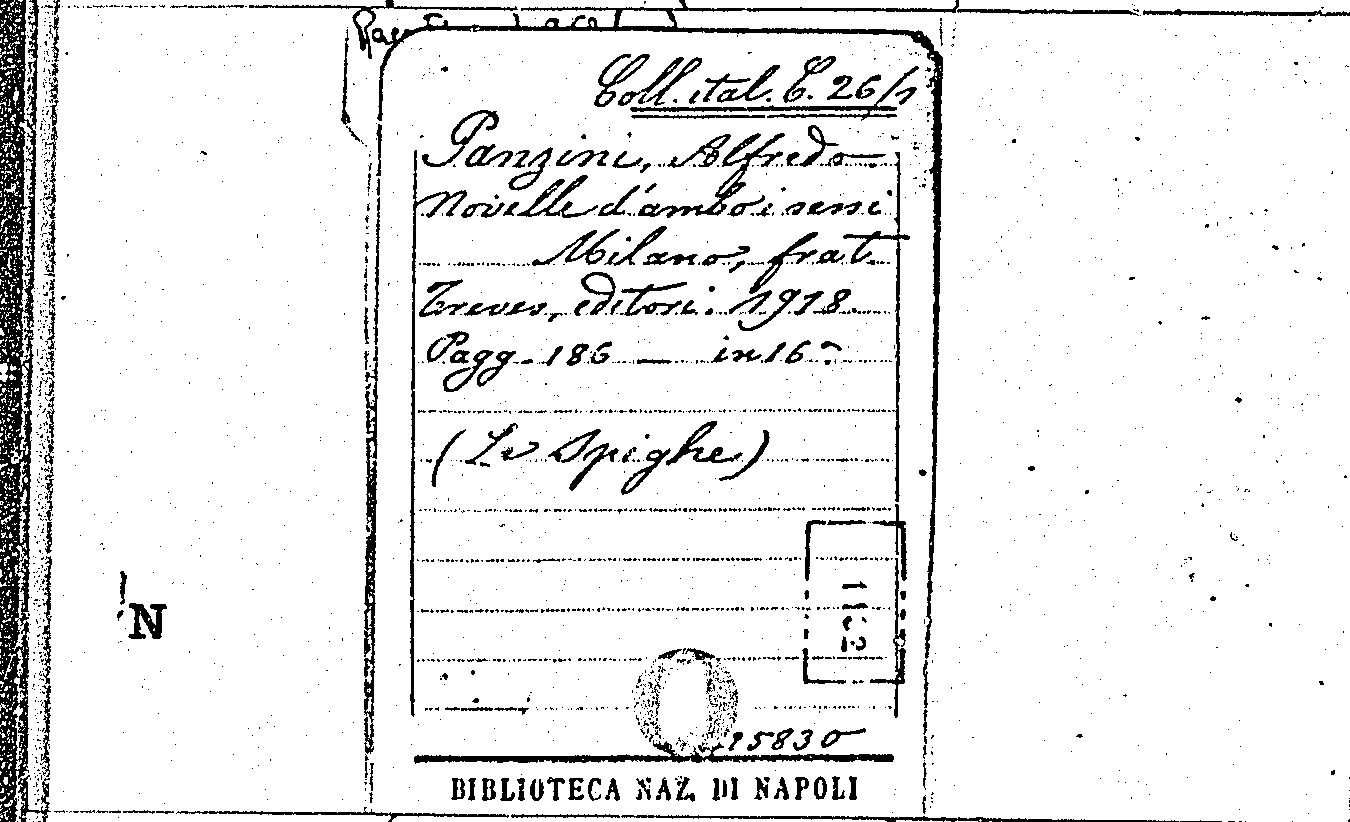 Coll. ital. C. 26/1
Panzini, Alfredo
Novelle d'ambo i sessi
Milano, frat.
Treves, editori. 1918.
Pagg. 186 — in 16°
(Le Spighe)
N
15830
BIBLIOTECA NAZ. DI NAPOLI